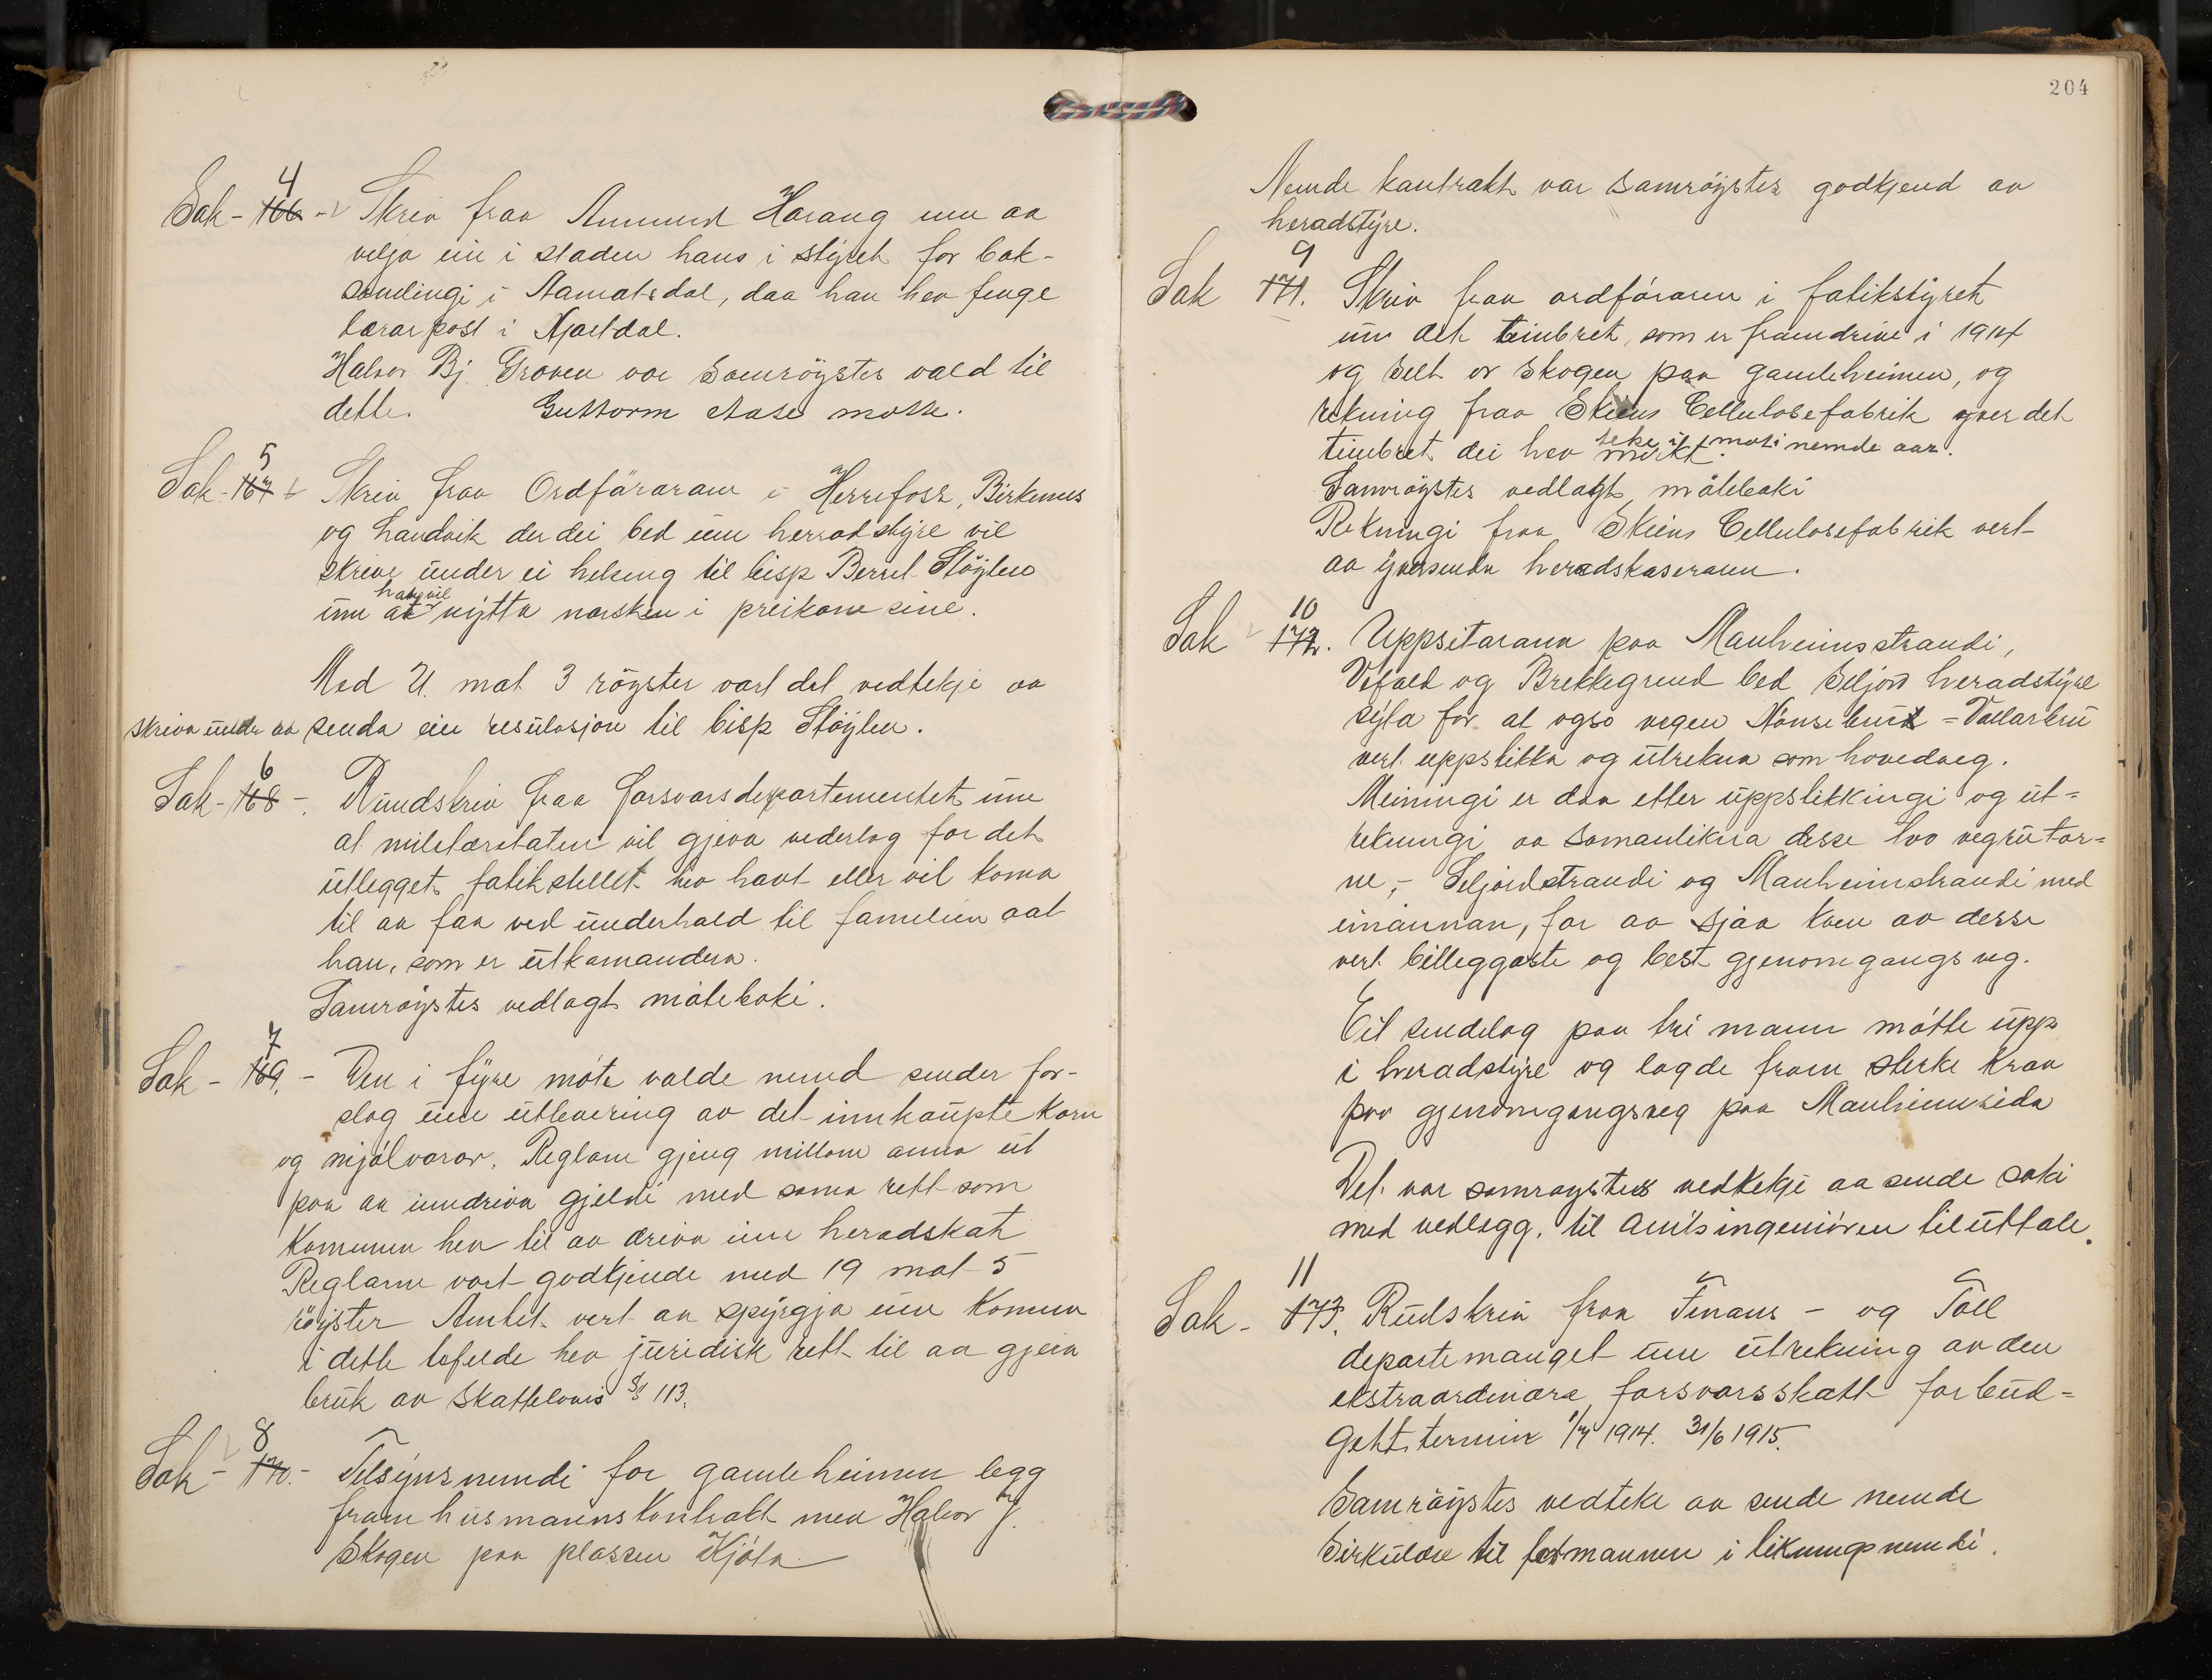 4
Sak - 166 - Skriv fraa Aamund Harang um aa
velja ein i staden hans i styret for bok-
samlingi i Aamotsdal, daa han hev fenge
lærarpost i Hjartdal.
Halvor Bj. Groven var samrøystes vald til
dette. Guttorm Aase møtte.
5
Sak - 167 Skriv fraa Ordførarane i Herrefoss, Birkenes
og Landvik der dei bed um herradstyre vil
skrive under ei helsing til bisp Bernt Støylen
han vil
um at nytta norsken i preikone sine.
Med 21 mot 3 røyster vart det vedtekje aa
skriva under aa senda ein resulosjon til bisp Støylen.
6
Sak - 168 -. Rundskriv fraa forsvarsdepartementet um
at militærstaten vil gjeva vederlag for det
utlegget fatikstellet hev havt eller vil koma
til aa faa ved underhald til familien aat
han, som er utkomandera.
Samrøystes vedlagt møteboki.
7
Sak - 169. - Den i fyrre møte valde nemd sender for-
slag um utlevering av det innkaupte korn
og mjølvarar. Reglane gjeng millom anna ut
paa aa inndriva gjeldi med sama rett som
Kommunen hev til aa driva inn heradskat
Reglarne vart godkjende med 19 mot 5
røyster Amtet vert aa spyrgja um Komunen
i dette tefelde hev juridisk rett til aa gjera
bruk av skattelovis § 113.
8
Sak - 170. - Tilsynsnemndi for gamleheimen legg
fram husmannskontrakt med Halvor J.
Skogen paa plassen Kjøta
204
Nemde kontrakt var samrøystes godkjend av
heradstyre.
9
Sak 171. Skriv fraa ordføraren i fatikstyret
um det timbret, som er framdrive i 1914
og selt or skogen paa gamleheimen, og
rekning fraa Skiens Cellulosefabrik yver det
teke i mot i
timbret dei hev merkt. nemde aar.
Samrøystes vedlagt møteboki
Rekningi fraa Skiens Cellulosefabrik vert
aa yversenda heradskaseraren.
10
Sak 172. Uppsitarann paa Manheimsstrandi,
Vefald og Brekkegrend bed Seljord heradstyre
syta for at ogso vegen Nonsebuk = Vallarbru
vert uppstikka og utrekna som hovedveg.
Meiningi er daa etter uppstikkingi og ut=
rekningi aa samanlikna desse tvo vegrutar=
ne, - Seljordstrandi og Manheimstrandi med
einannan, for aa sjaa kven av desse
vert billeggaste og best gjenomgangsveg.
Eit sendelag paa tri mann møtte upp
i heradstyre og lagde fram sterke krav
paa gjenomgangsveg paa Manheimsida
Det var samrøystes vedtekje aa sende saki
med vedlegg. til amtsingeniøren til uttale.
11
Sak - 173. Rudskriv fraa Finans - og Toll
departemanget um utrekning av den
ekstraordinære forsvarsskatt for bud=
gettstermin 1/7 1914. 31/6 1915.
Samrøystes vedteke aa sende nemde
Sirkulære til formannen i likningsnemdi.